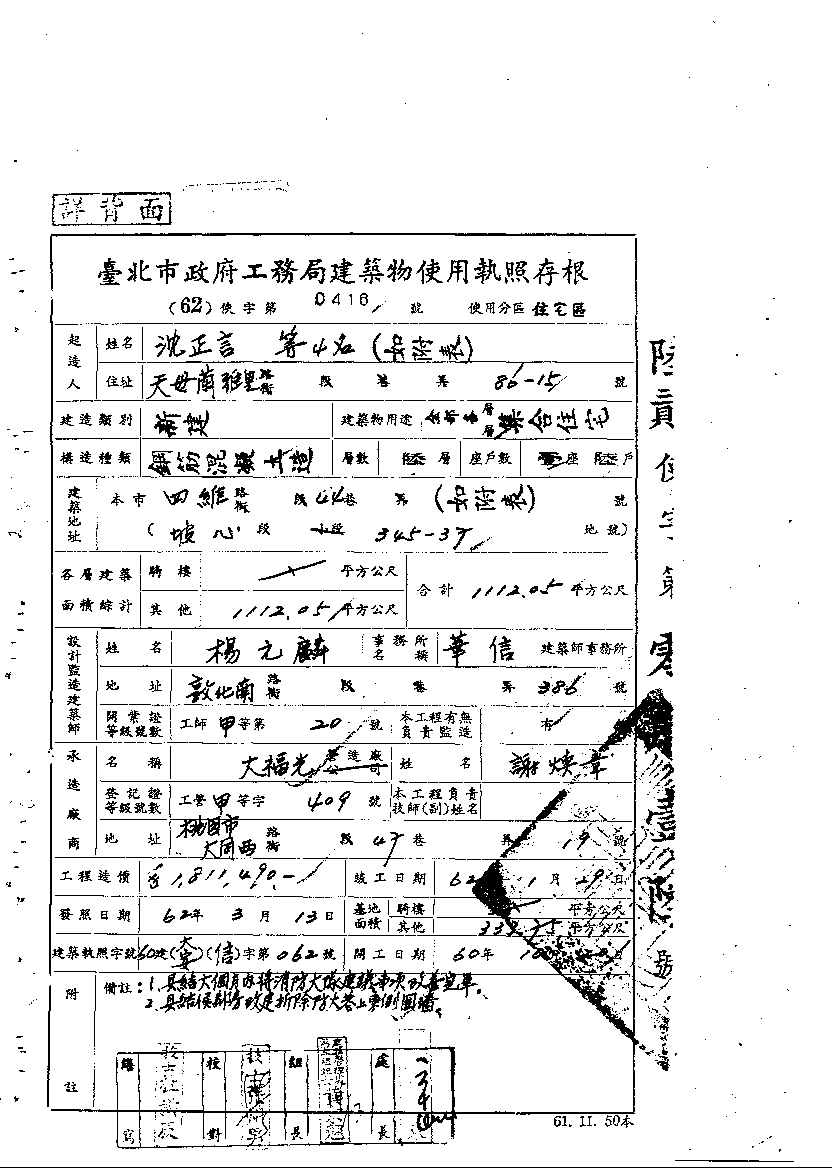 詳背面
臺北市政府工務局建築物使用執照存根
(62)使字第 0416 號 使用分區 住宅區
起造人 姓名 沈正言 等4名(如附表)
住址 天母蘭雅里 路街 段 巷 弄 86-15 號
建造類別 新建 建築物用途 全部各層 集合住宅
構造種類 鋼筋混凝土造 層數 陸層 座戶數 座 陸戶
建築地址 本市 四維 路街 段 44巷 弄 (如附表) 號
(坡心 段 小段 345-37 地號)
各層建築面積綜計 騎樓 平方公尺 合計 1112.05 平方公尺
其他 1112.05 平方公尺
設計監造建築師 姓名 楊元麟 事務所名稱 華信 建築師事務所
地址 敦化南 路街 段 巷 弄 386 號
開業證等級號數 工師 甲 等第 20 號 本工程有無負責監造 有
承造廠商 名稱 大福光 營造廠公司 姓名 謝煥章
登記證等級號數 工營 甲 等字 409 號 本工程負責技師(副)姓名
地址 桃園市大同西 路街 段 47 巷 弄 19 號
工程造價 $1,811,490.- 竣工日期 62 1月29日
發照日期 62年3月13日 基地面積 騎樓 平方公尺
其他 平方公尺
建築執照字號 60建(大安)(信)字第062號 開工日期 60年
附註 備註:1.具結六個月內將消防大隊建議事項改善完畢。
2.具結俟刻分改建拆除防火巷上東側圍牆。
繕寫 校對 組長 處長
61. 11. 50本
陸貳使字第零 壹陸號